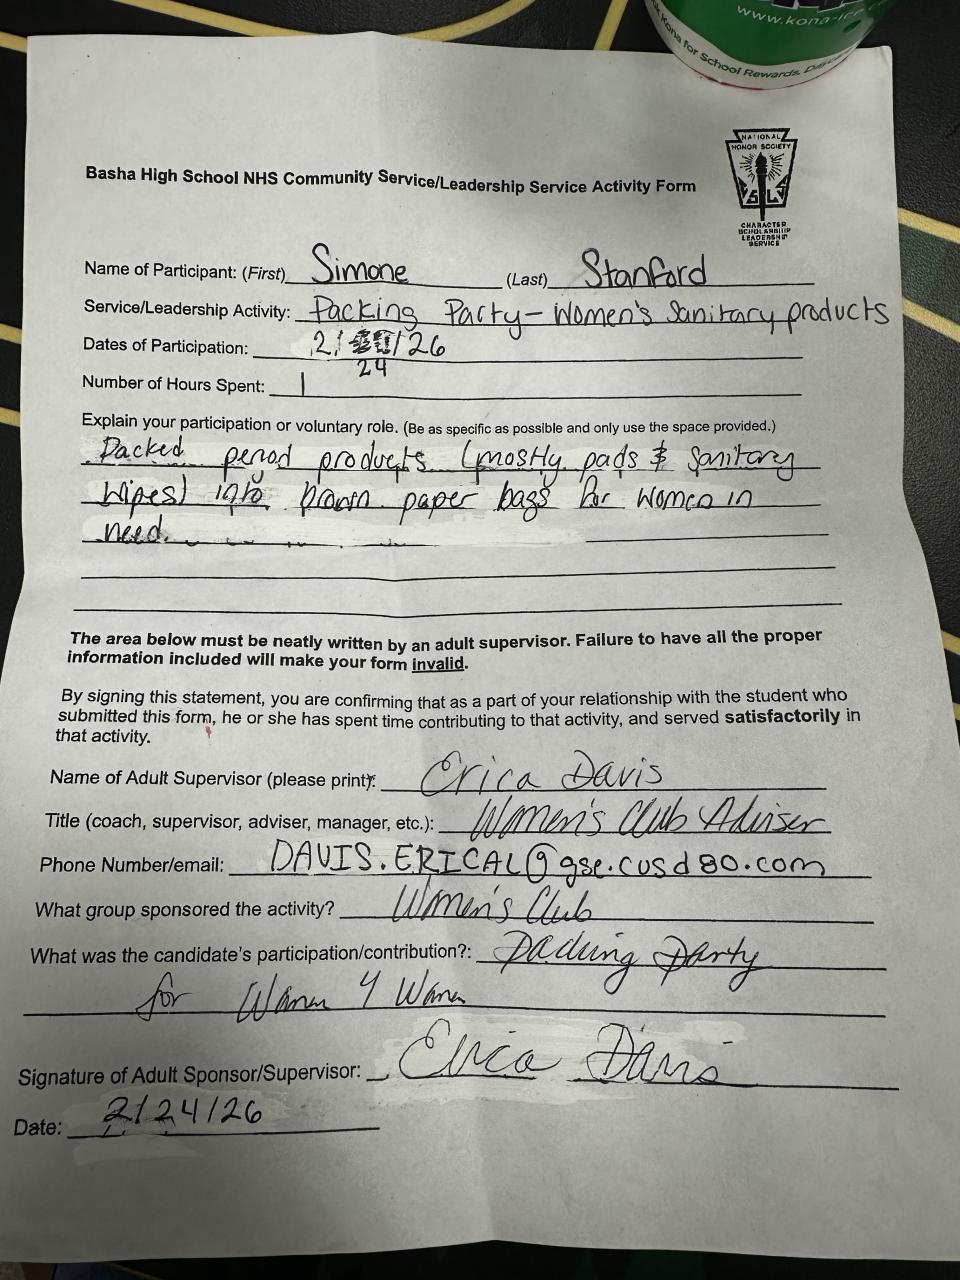 www.kona-ice.c
Kona for School Rewards, D
NATIONAL
HONOR SOCIETY
S L
CHARACTER
SCHOLARSHIP
LEADERSHIP
SERVICE
Basha High School NHS Community Service/Leadership Service Activity Form
Name of Participant: (First) Simone (Last) Stanford
Service/Leadership Activity: Packing Party - Women's Sanitary products
Dates of Participation: 2/ /26
24
Number of Hours Spent: 1
Explain your participation or voluntary role. (Be as specific as possible and only use the space provided.)
Packed period products (mostly pads & sanitary
wipes) into brown paper bags for women in
need.
The area below must be neatly written by an adult supervisor. Failure to have all the proper
information included will make your form invalid.
By signing this statement, you are confirming that as a part of your relationship with the student who
submitted this form, he or she has spent time contributing to that activity, and served satisfactorily in
that activity.
Name of Adult Supervisor (please print): Erica Davis
Title (coach, supervisor, adviser, manager, etc.): Women's Club Adviser
Phone Number/email: DAVIS.ERICAL@gse.cusd80.com
What group sponsored the activity? Women's Club
What was the candidate's participation/contribution?: Packing Party
for Women 4 Women
Signature of Adult Sponsor/Supervisor: Erica Davis
Date: 2/24/26